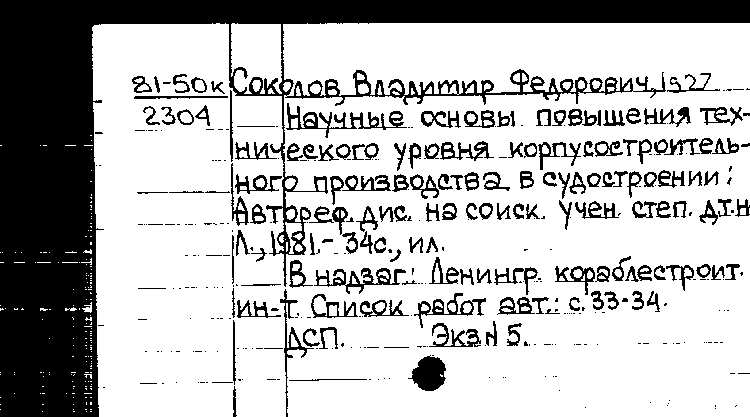 81-50к Соколов, Владимир Федорович, 1927
2304 Научные основы повышения тех-
нического уровня корпусостроитель-
ного производства в судостроении:
Автореф. дис. на соиск. учен. степ. д.т.н
Л., 1981.- 34с., ил.
В надзаг.: Ленингр. кораблестроит.
ин-т. Список работ авт.: с. 33-34.
ДСП. Экз N 5.